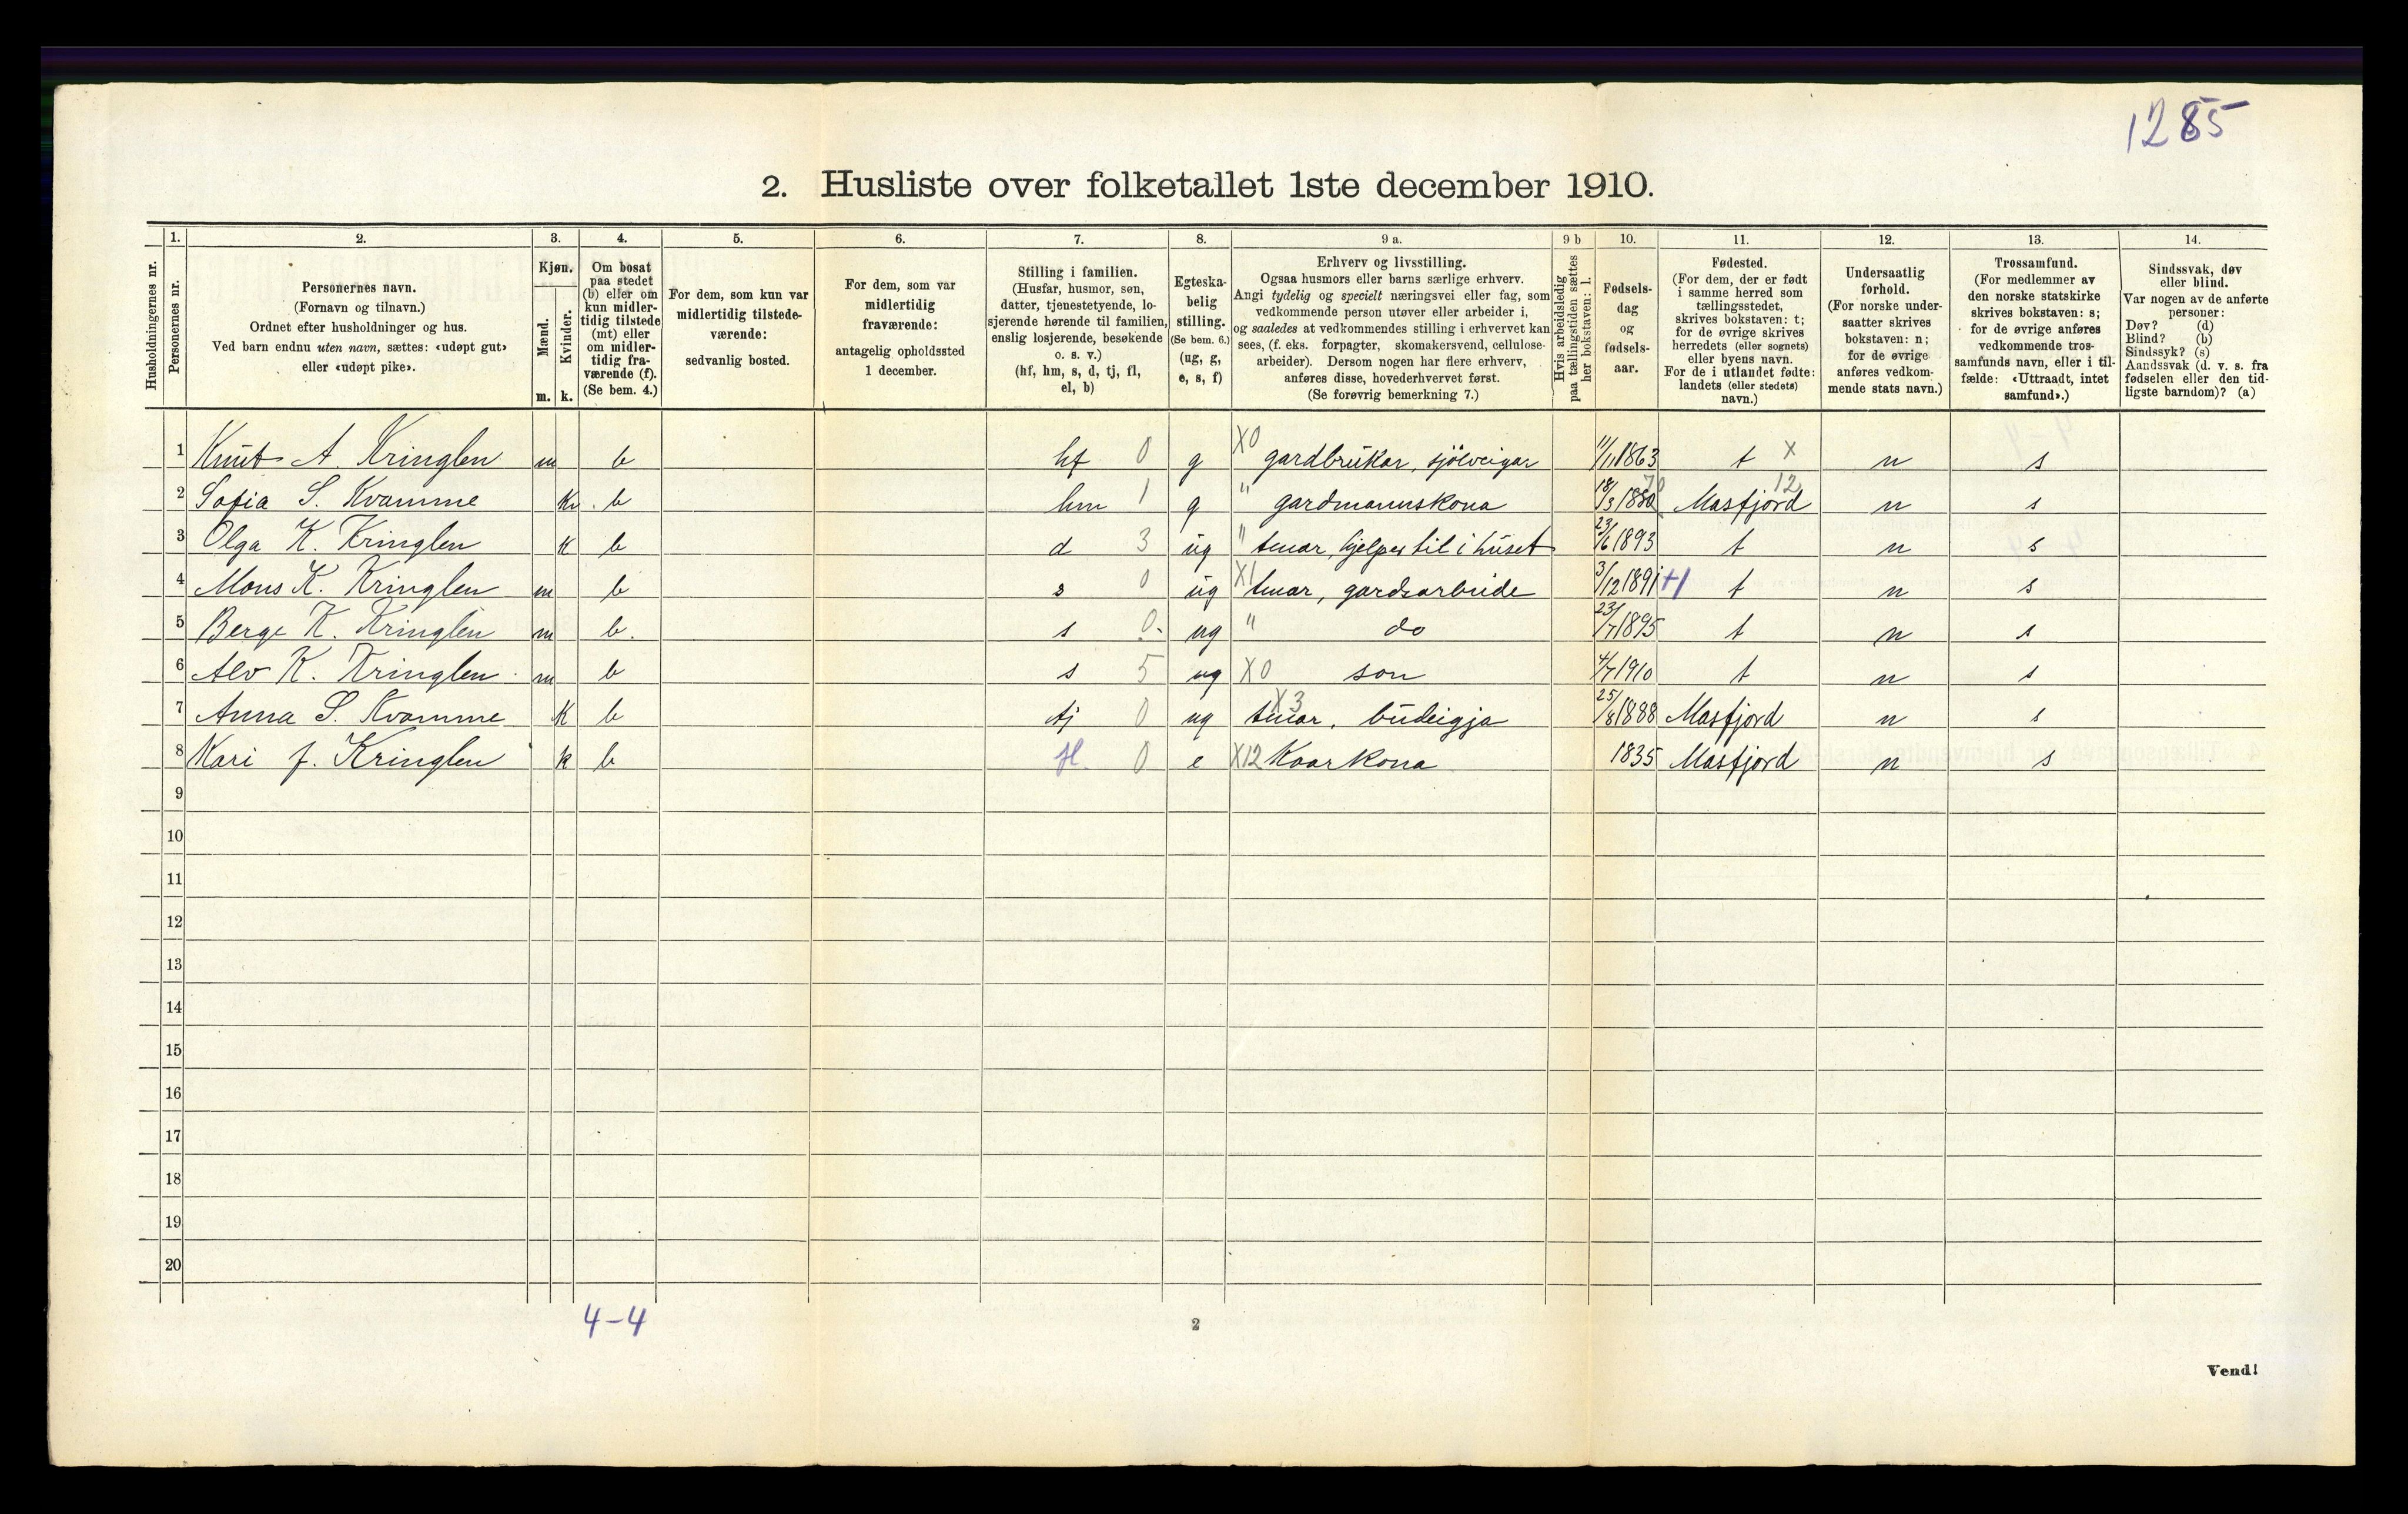 1285
2. Husliste over folketallet 1ste december 1910.
1. 2. 3. 4. 5. 6. 7. 8. 9 a. 9 b 10. 11. 12. 13. 14.
Husholdningernes nr.
Personernes nr.
Personernes navn.
(Fornavn og tilnavn.)
Ordnet efter husholdninger og hus.
Ved barn endnu uten navn, sættes: «udøpt gut»
eller «udøpt pike».
Kjøn.
Mænd.
Kvinder.
m. k.
Om bosat
paa stedet
(b) eller om
kun midler-
tidig tilstede
(mt) eller
om midler-
tidig fra-
værende (f).
(Se bem. 4.)
For dem, som kun var
midlertidig tilstede-
værende:
sedvanlig bosted.
For dem, som var
midlertidig
fraværende:
antagelig opholdssted
1 december.
Stilling i familien.
(Husfar, husmor, søn,
datter, tjenestetyende, lo-
sjerende hørende til familien,
enslig losjerende, besøkende
o. s. v.)
(hf, hm, s, d, tj, fl,
el, b)
Egteska-
belig
stilling.
(Se bem. 6.)
(ug, g,
e, s, f)
Erhverv og livsstilling.
Ogsaa husmors eller barns særlige erhverv.
Angi tydelig og specielt næringsvei eller fag, som
vedkommende person utøver eller arbeider i,
og saaledes at vedkommendes stilling i erhvervet kan
sees, (f. eks. forpagter, skomakersvend, cellulose-
arbeider). Dersom nogen har flere erhverv,
anføres disse, hovederhvervet først.
(Se forøvrig bemerkning 7.)
Hvis arbeidsledig
paa tællingstiden sættes
her bokstaven: l.
Fødsels-
dag
og
fødsels-
aar.
Fødested.
(For dem, der er født
i samme herred som
tællingsstedet,
skrives bokstaven: t;
for de øvrige skrives
herredets (eller sognets)
eller byens navn.
For de i utlandet fødte:
landets (eller stedets)
navn.)
Undersaatlig
forhold.
(For norske under-
saatter skrives
bokstaven: n;
for de øvrige
anføres vedkom-
mende stats navn.)
Trossamfund.
(For medlemmer av
den norske statskirke
skrives bokstaven: s;
for de øvrige anføres
vedkommende tros-
samfunds navn, eller i til-
fælde: «Uttraadt, intet
samfund».)
Sindssvak, døv
eller blind.
Var nogen av de anførte
personer:
Døv? (d)
Blind? (b)
Sindssyk? (s)
Aandssvak (d. v. s. fra
fødselen eller den tid-
ligste barndom)? (a)
1 Knut A. Kringlen m b hf 0 g X0 gardbrukar, sjölveigar 11/11 1863 t X n s
2 Sofia S. Kvamme Kv. b hm 1 g " gardmannskona 18/3 1880 70 Masfjord 12 n s
3 Olga K. Kringlen K b d 3 ug " tenar, hjelper til i huset 23/6 1893 t n s
4 Mons K. Kringlen m b s 0 ug X1 tenar, gardsarbeide 3/12 1891 +1 t n s
5 Berge K. Kringlen m b. s 0 ug " do 23/7 1895 t n s
6 Alv K. Kringlen m b s 5 ug X0 son 4/7 1910 t n s
7 Anna S. Kvamme K b tj 0 ug X3 tenar, budeigja 25/8 1888 Masfjord n s
8 Kari J. Kringlen k b fl. 0 e X12 Kaarkona 1835 Masfjord n s
9
10
11
12
13
14
15
16
17
18
19
20
4-4
2
Vend!